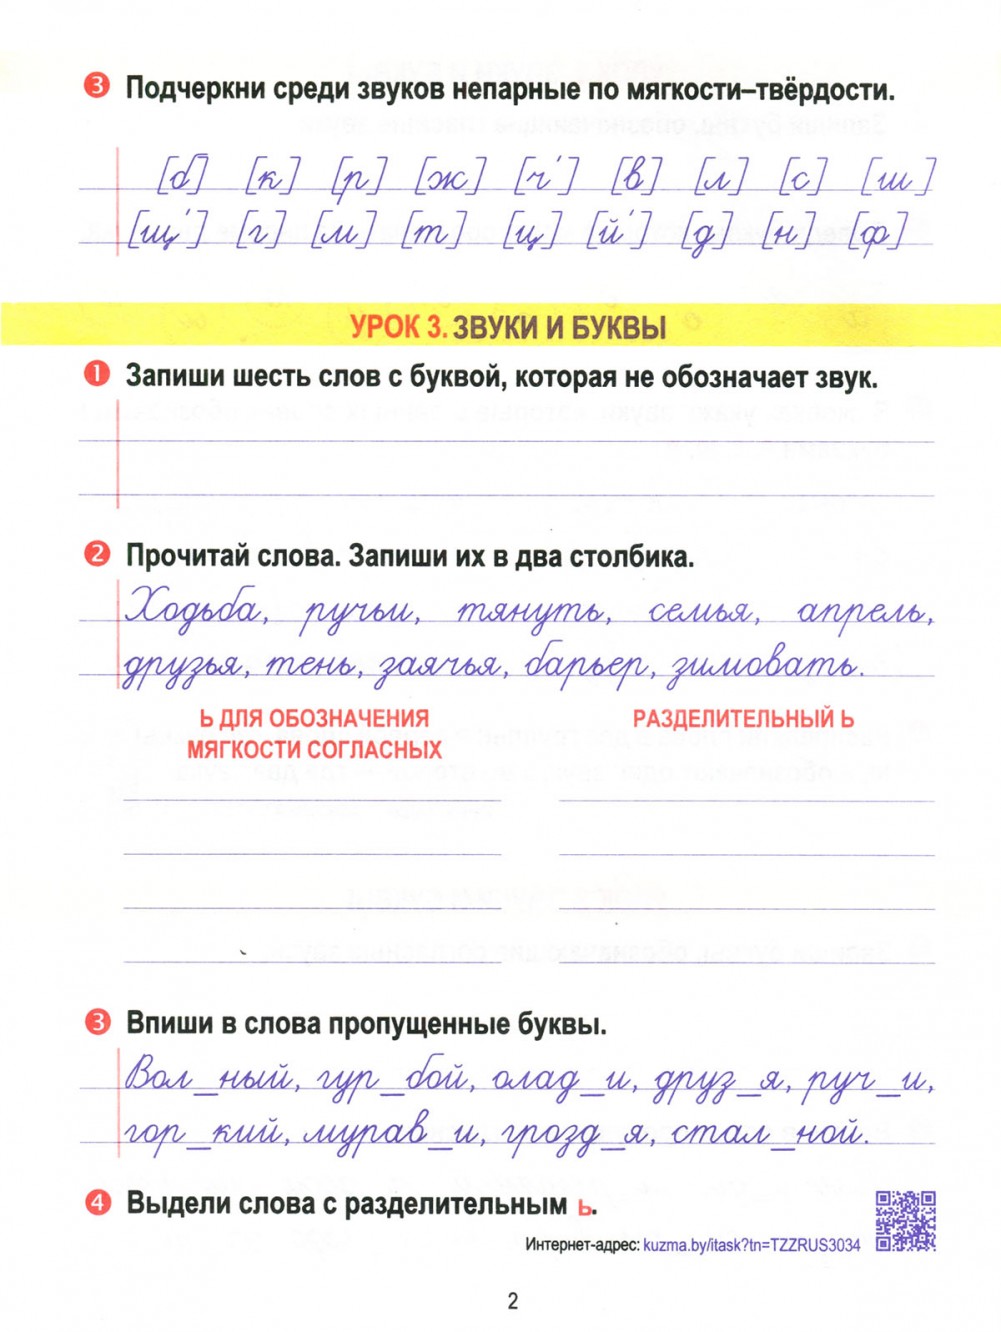 3 Подчеркни среди звуков непарные по мягкости–твёрдости.
[б] [к] [р] [ж] [ч'] [в] [л] [с] [ш]
[щ'] [г] [м] [т] [ц] [й'] [д] [н] [ф]
УРОК 3. ЗВУКИ И БУКВЫ
1 Запиши шесть слов с буквой, которая не обозначает звук.
2 Прочитай слова. Запиши их в два столбика.
Ходьба, ручьи, тянуть, семья, апрель,
друзья, тень, заячья, барьер, зимовать.
Ь ДЛЯ ОБОЗНАЧЕНИЯ
МЯГКОСТИ СОГЛАСНЫХ
РАЗДЕЛИТЕЛЬНЫЙ Ь
3 Впиши в слова пропущенные буквы.
Вол_ный, гур_бой, олад_и, друз_я, руч_и,
гор_кий, мурав_и, грозд_я, стал_ной.
4 Выдели слова с разделительным ь.
Интернет-адрес: kuzma.by/itask?tn=TZZRUS3034
2